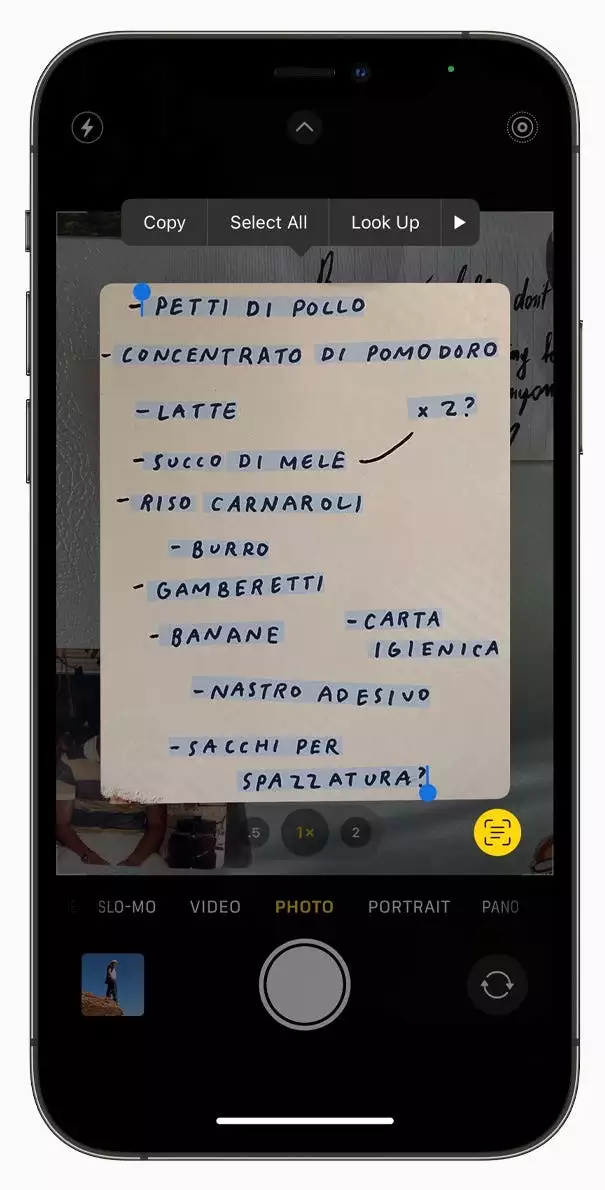 Copy Select All Look Up
don't
- PETTI DI POLLO
- CONCENTRATO DI POMODORO
- LATTE x 2?
- SUCCO DI MELE
- RISO CARNAROLI
- BURRO
- GAMBERETTI
- BANANE
- CARTA
IGIENICA
- NASTRO ADESIVO
- SACCHI PER
SPAZZATURA?
.5 1× 2
SLO-MO VIDEO PHOTO PORTRAIT PANO